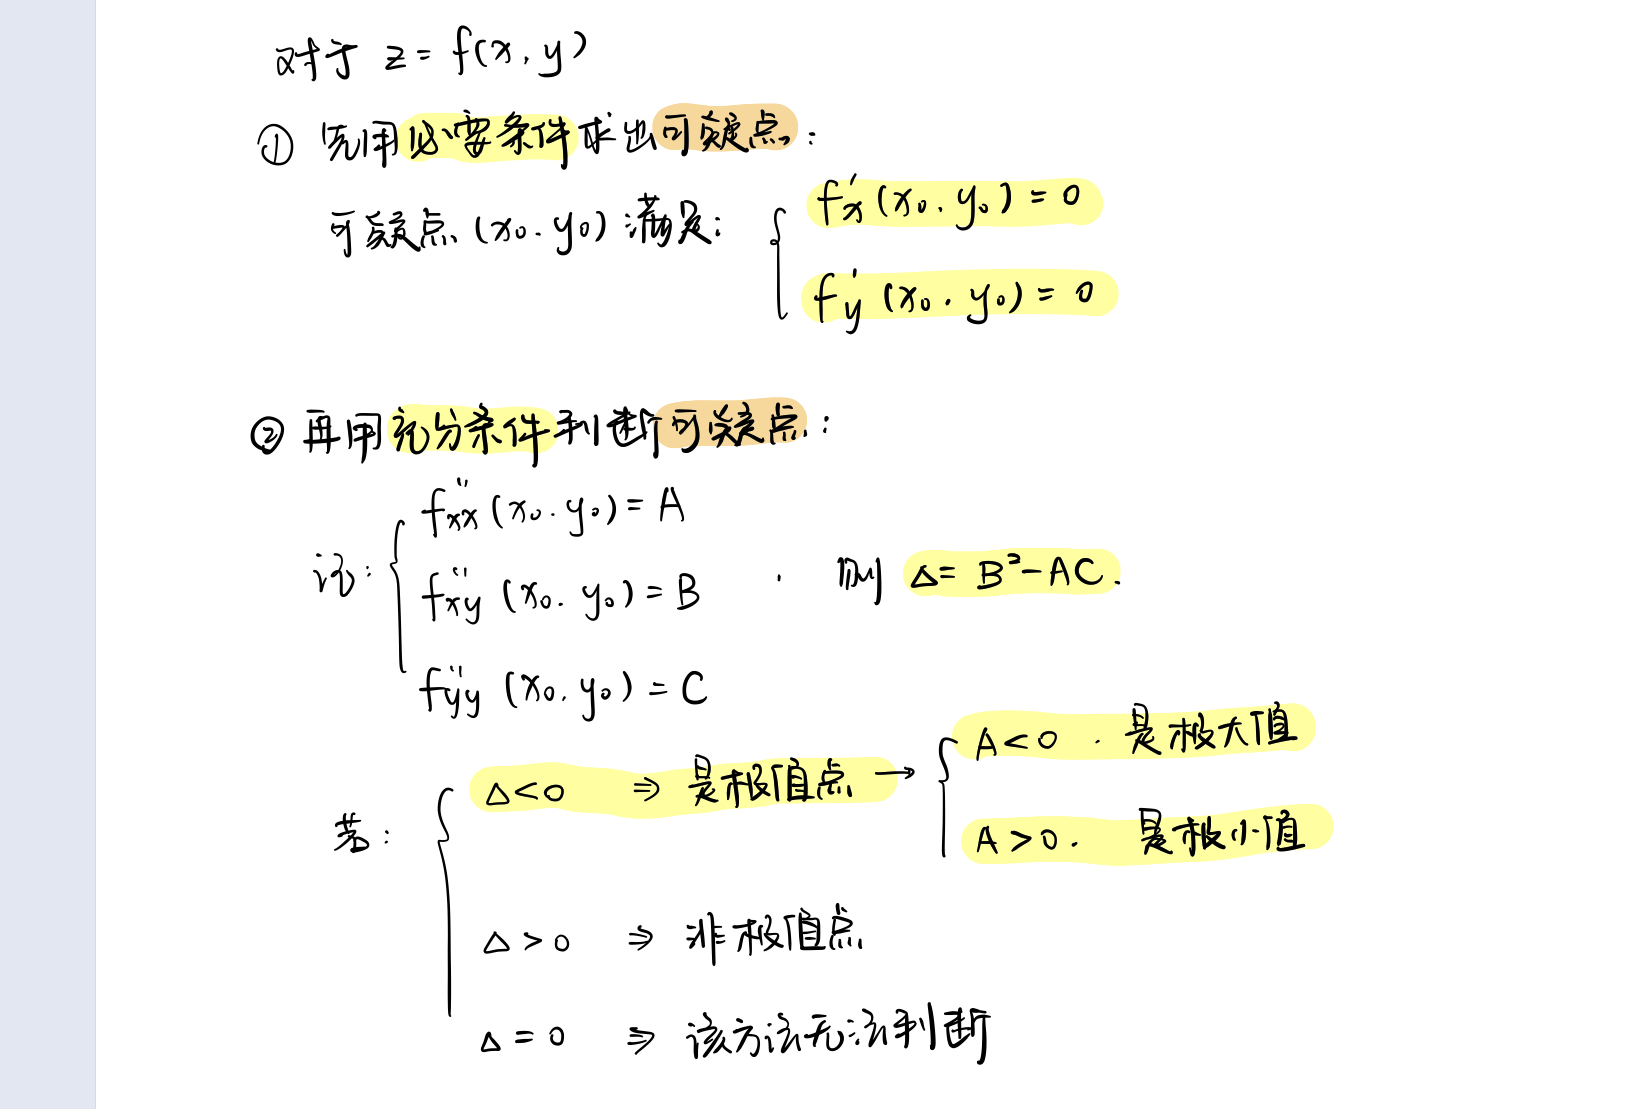 对于 z = f(x, y)
① 先用必要条件求出可疑点:
可疑点 (x₀. y₀) 满足: { f'ₓ(x₀. y₀) = 0
f'y (x₀. y₀) = 0
② 再用充分条件判断可疑点:
f''ₓₓ (x₀. y₀) = A
记: { f''xy (x₀. y₀) = B , 则 Δ = B² - AC.
f''yy (x₀. y₀) = C
A < 0 . 是极大值
若: { Δ < 0 ⇒ 是极值点 → {
A > 0 . 是极小值
Δ > 0 ⇒ 非极值点
Δ = 0 ⇒ 该方法无法判断